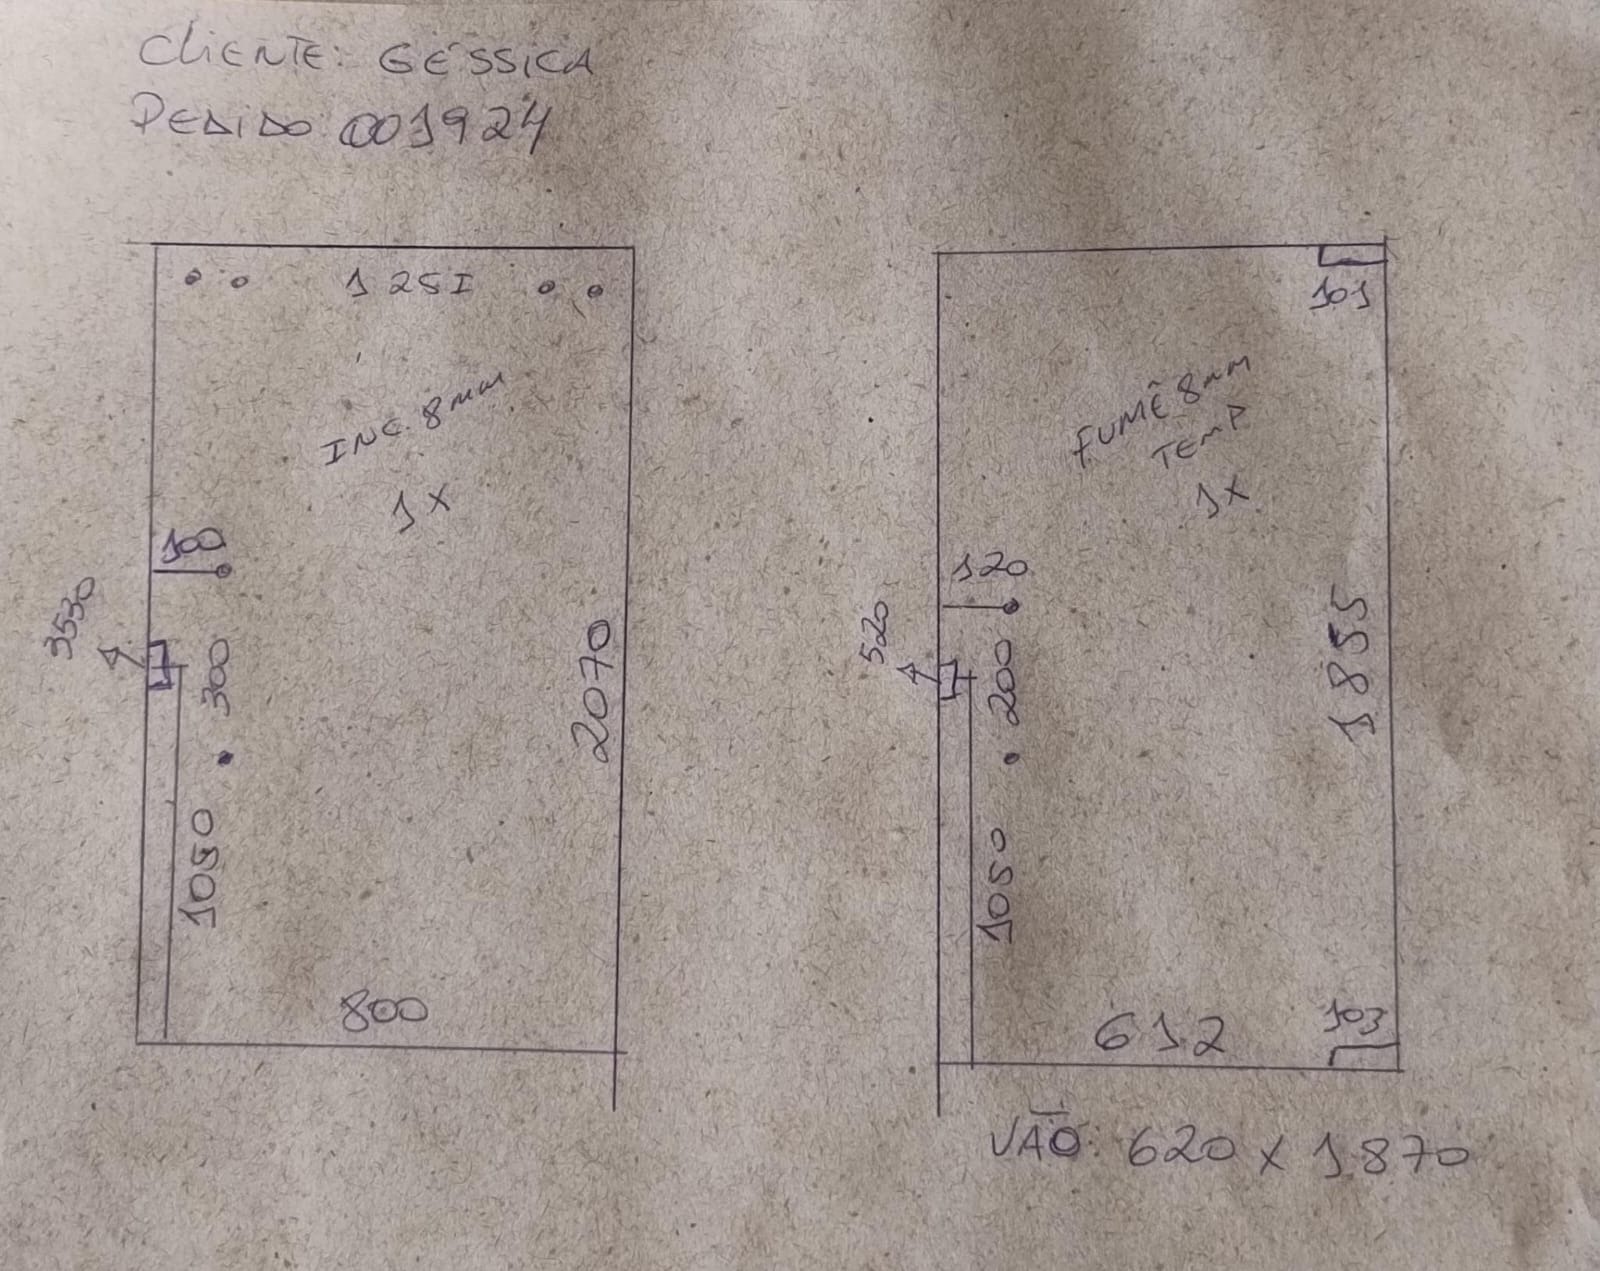 CLIENTE: GÉSSICA
PEDIDO: 001924
125I
INC. 8mm
1X
100
3530
300
2070
1050
800
101
FUMÊ 8mm
TEMP
1X
120
520
200
1855
1050
612
103
VÃO: 620 X 1870